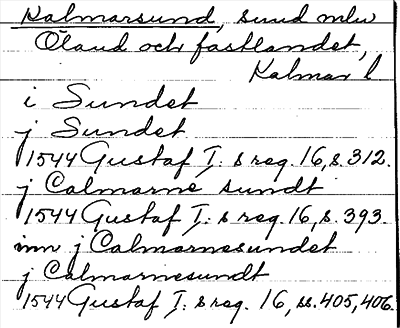 Kalmarsund, sund mlw
Öland och fastlandet,
Kalmar l
i Sundet
j Sundet
1544 Gustaf I: s reg. 16, s. 312.
j Calmarne sundt
1544 Gustaf I: s reg. 16, s. 393.
inn j Calmarnesundet
j Calmarnesundt
1544 Gustaf I: s reg. 16, ss. 405, 406.